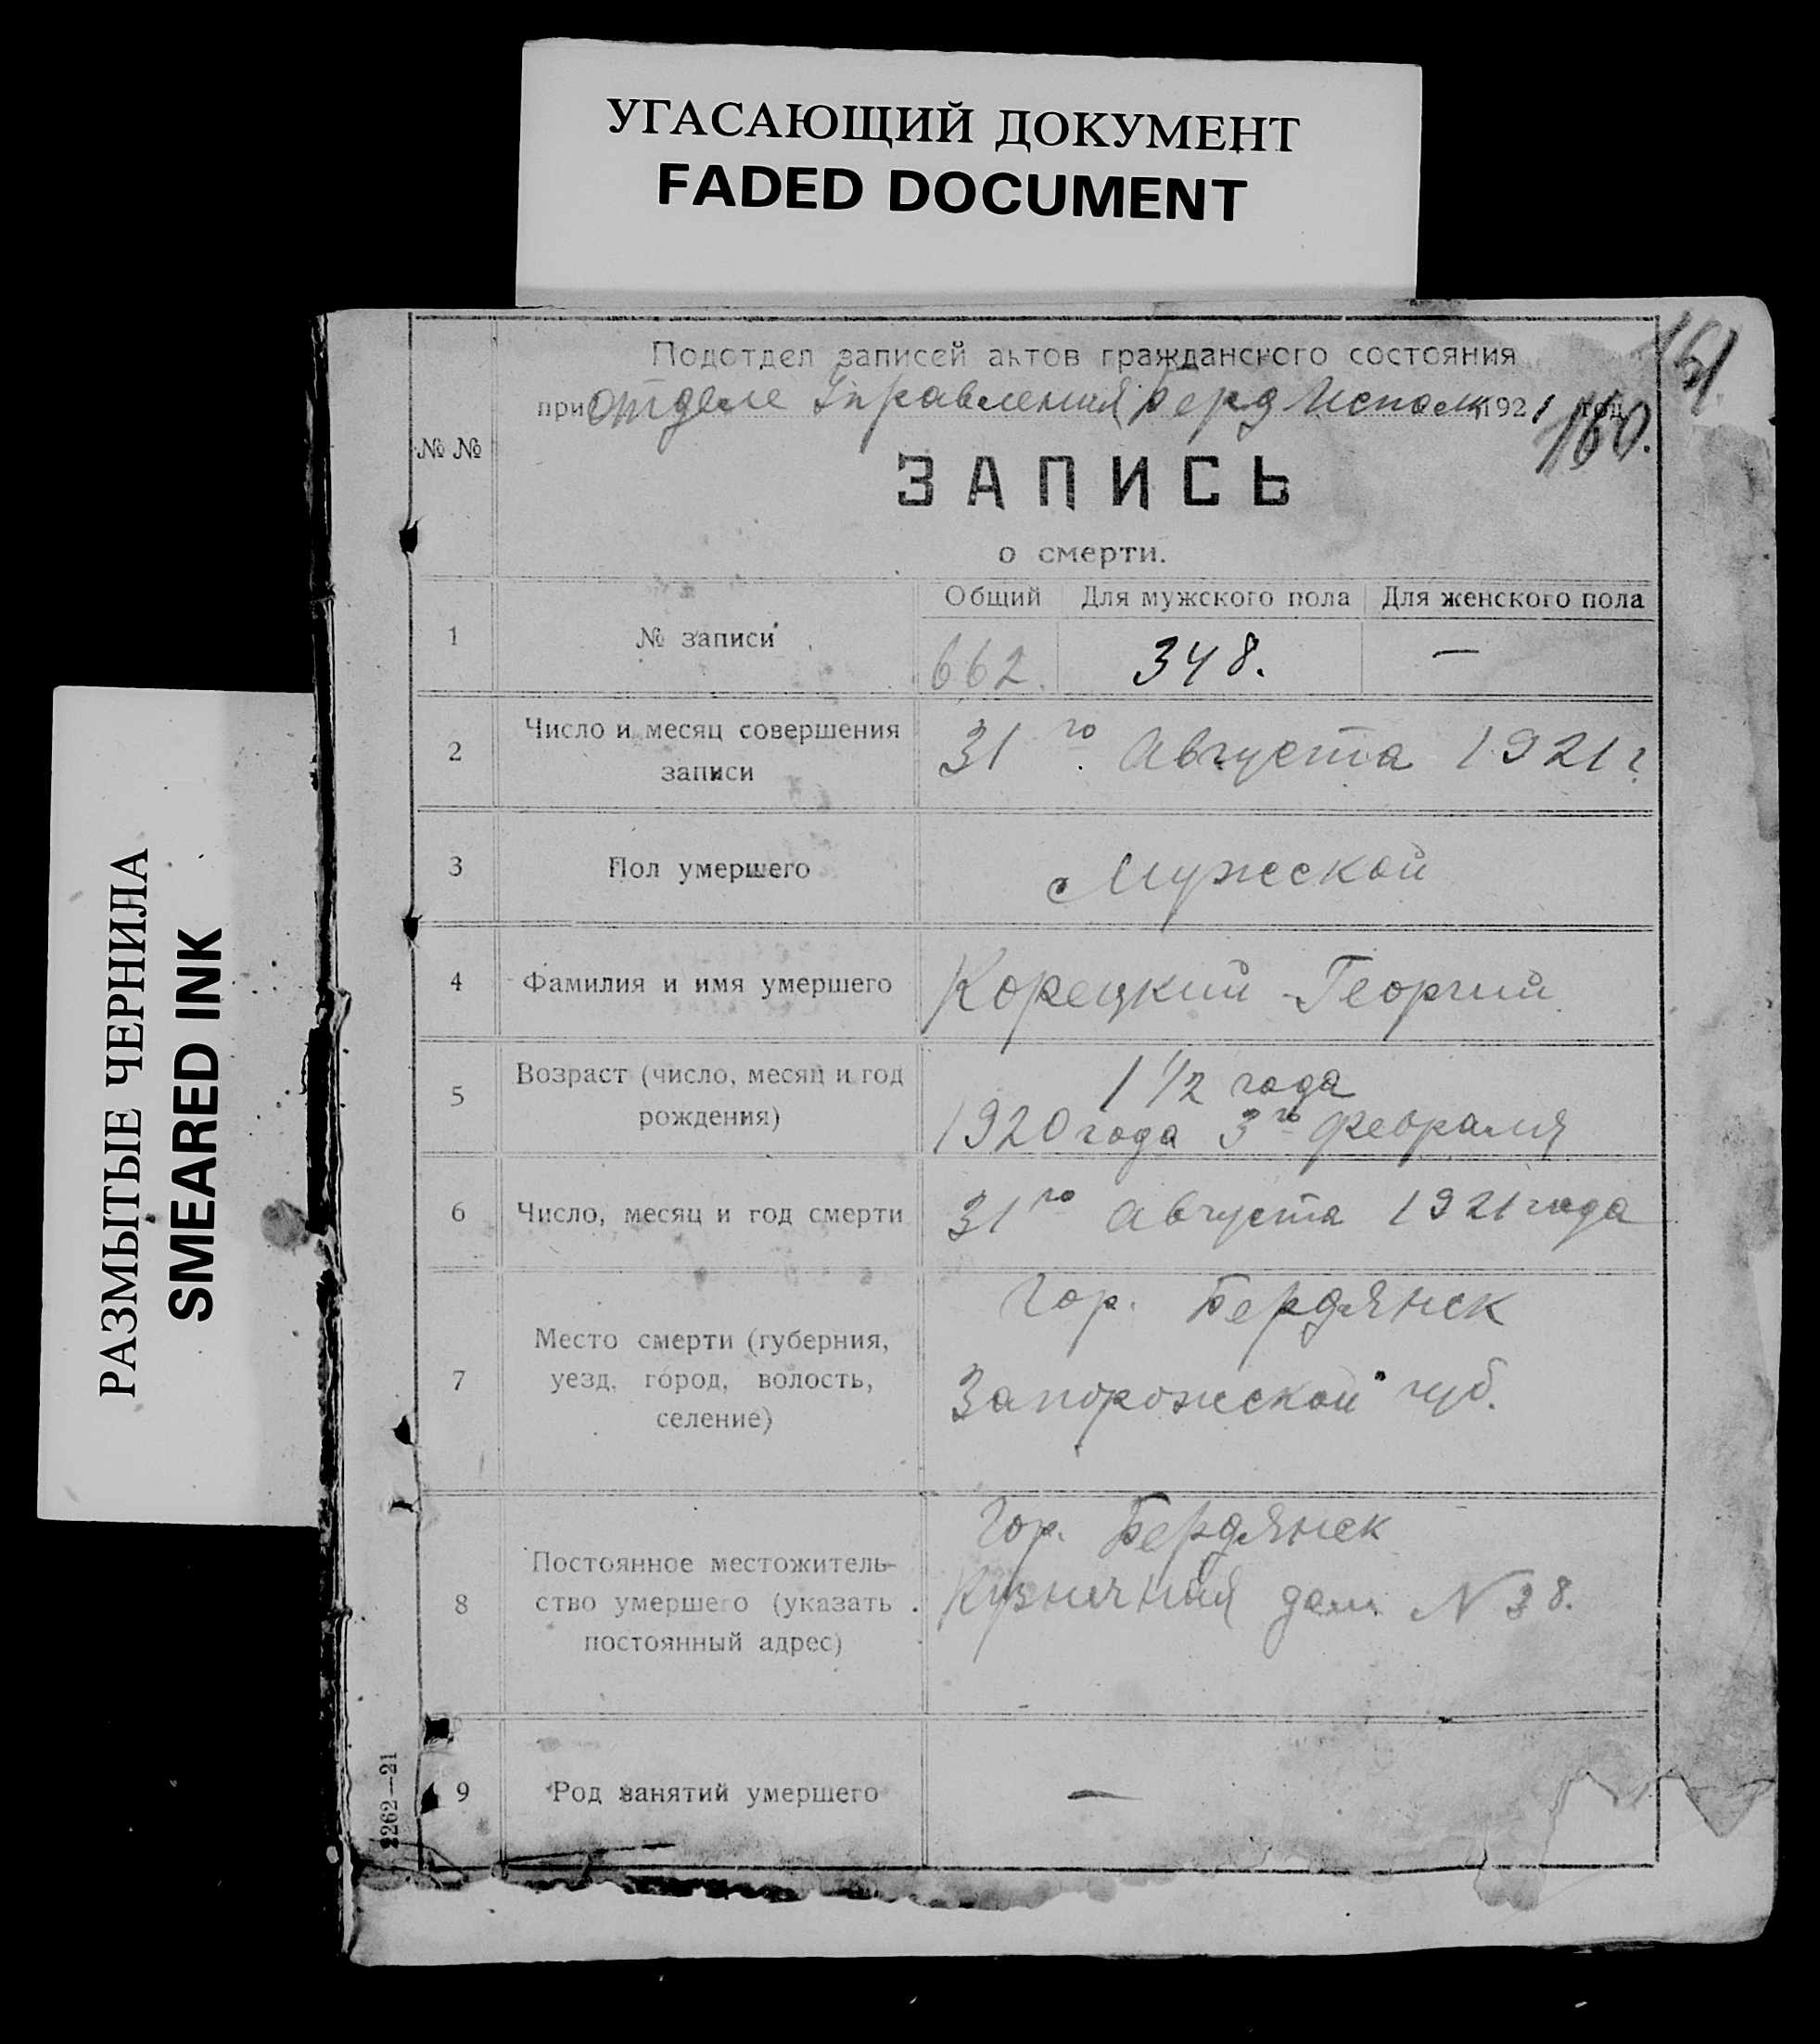 УГАСАЮЩИЙ ДОКУМЕНТ
FADED DOCUMENT
РАЗМЫТЫЕ ЧЕРНИЛА
SMEARED INK
151
Подотдел записей актов гражданского состояния
при отделе Управления Берд Исполк 1921 год
160.
№ №
ЗАПИСЬ
о смерти.
Общий Для мужского пола Для женского пола
1 № записи 662. 348. —
2 Число и месяц совершения записи 31го Августа 1921 г.
3 Пол умершего Мужской
4 Фамилия и имя умершего Корецкий Георгий
5 Возраст (число, месяц и год рождения) 1 1/2 года
1920 года 3го февраля
6 Число, месяц и год смерти 31го Августа 1921 года
7 Место смерти (губерния, уезд, город, волость, селение) Гор. Бердянск
Запорожской губ.
8 Постоянное местожитель-
ство умершего (указать
постоянный адрес) Гор. Бердянск
Кузнечная дом N 38.
9 Род занятий умершего —
2262—21